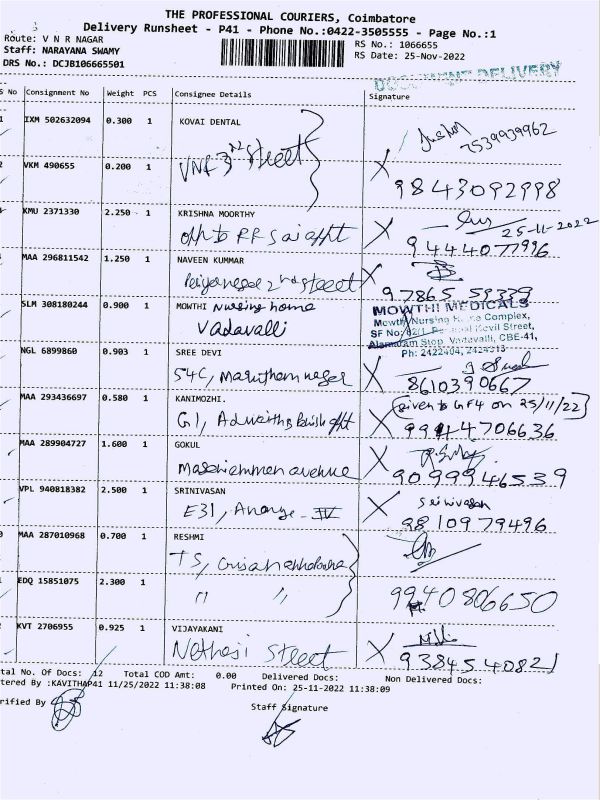 THE PROFESSIONAL COURIERS, Coimbatore
Delivery Runsheet - P41 - Phone No.:0422-3505555 - Page No.:1
Route: V N R NAGAR
Staff: NARAYANA SWAMY
DRS No.: DCJB106665501
RS No.: 1066655
RS Date: 25-Nov-2022
DOCUMENT DELIVERY
S No Consignment No Weight PCS Consignee Details Signature
IXM 502632094 0.300 1 KOVAI DENTAL
7539939962
VKM 490655 0.200 1
VNR 3rd Street
9843092998
KMU 2371330 2.250 1 KRISHNA MOORTHY
opp to RR Sai appt
25-11-2022
9444077996
MAA 296811542 1.250 1 NAVEEN KUMMAR
2nd street
97865 59339
SLM 308180244 0.900 1 MOWTHI Nursing home
Vadavalli
MOWTHI MEDICALS
Mowthi Nursing Home Complex,
Kovil Street,
Stop, Vadavalli, CBE-41,
Ph: 2422404, 2424313
NGL 6899860 0.903 1 SREE DEVI
54C, Marutham nagar
8610390667
MAA 293436697 0.580 1 KANIMOZHI.
G1, Adwaitha appt
(given to GF4 on 25/11/22)
9944706636
MAA 289904727 1.600 1 GOKUL
Mariamman avenue
9099946539
VPL 940818382 2.500 1 SRINIVASAN
E31, Ananya - IV
Srinivasan
9810979496
MAA 287010968 0.700 1 RESHMI
T5,
EDQ 15851075 2.300 1
" "
9940806650
KVT 2706955 0.925 1 VIJAYAKANI
Nethaji Street
9384540821
tal No. Of Docs: 12 Total COD Amt: 0.00 Delivered Docs: Non Delivered Docs:
tered By :KAVITHAP41 11/25/2022 11:38:08 Printed On: 25-11-2022 11:38:09
rified By Staff Signature